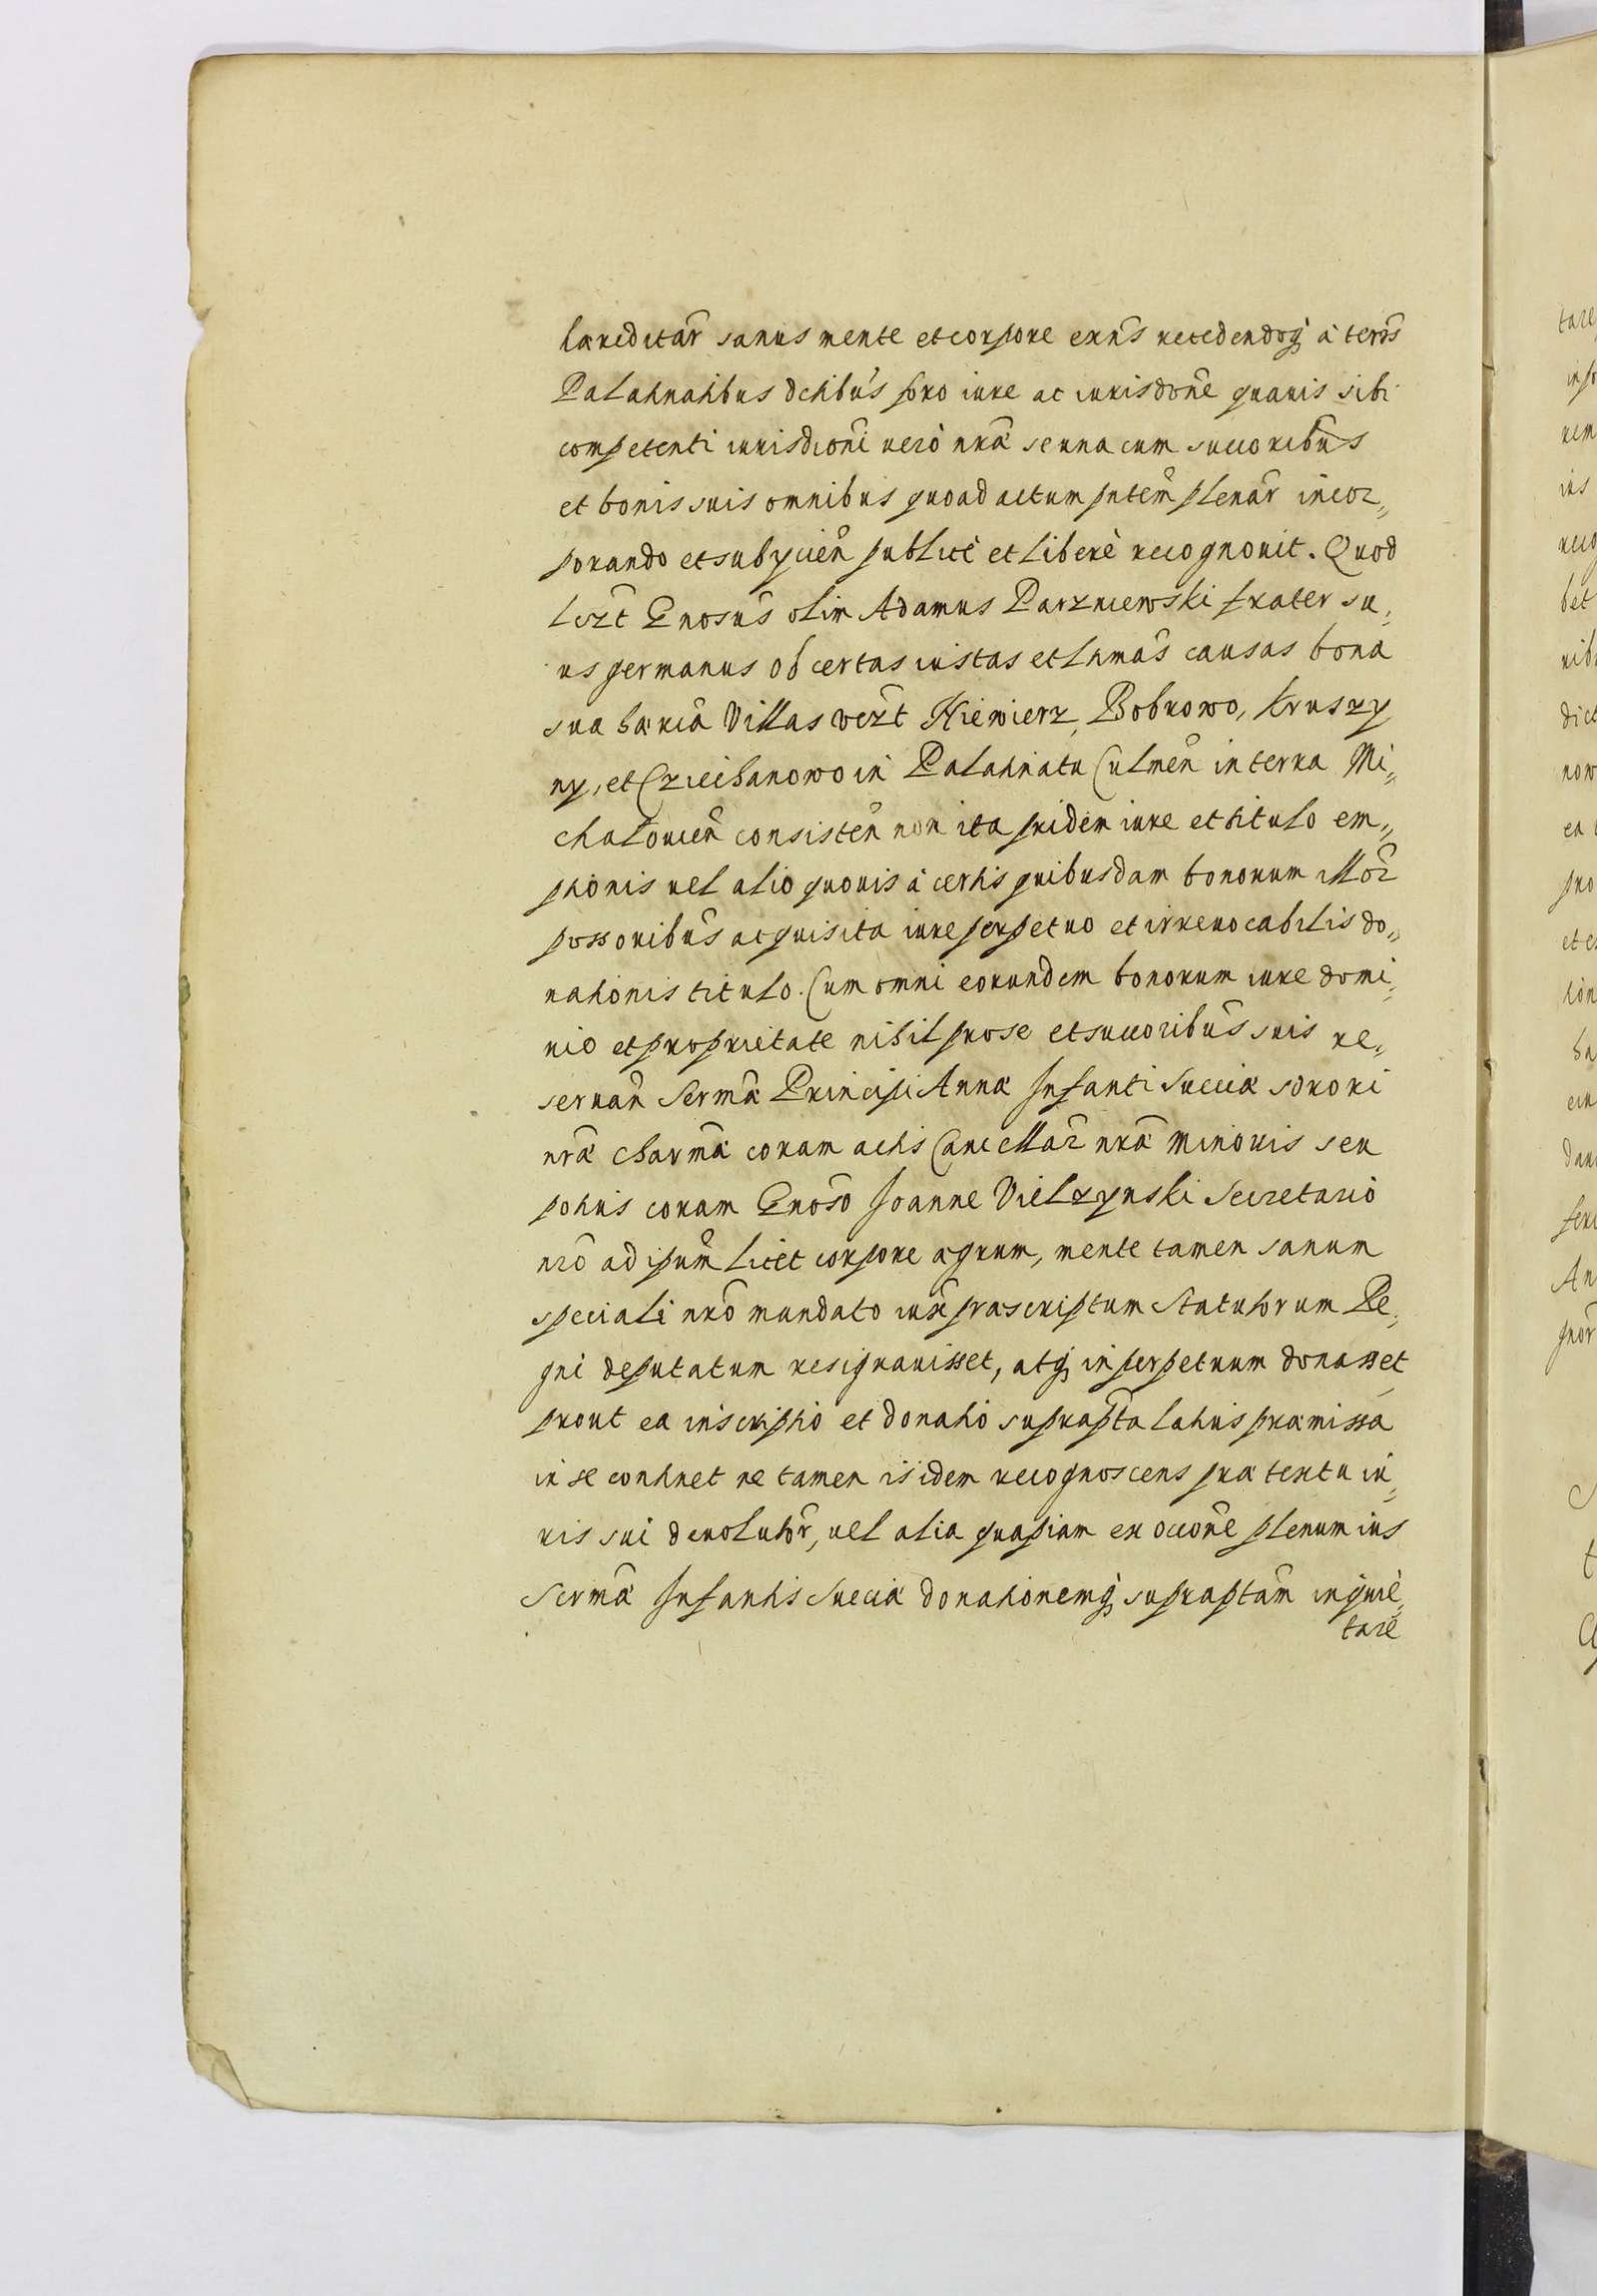 hæreditar̃ sanus mente et corpore exñs recedendoq́ à terris
Palatinatibus dtibus foro iure ac iurisdone quauis sibi
competenti iurisdioni vero nrã se una cum succoribus
et bonis suis omnibus quoad actum pntem plenar̃ incor„
porando et subycien̄ publicè et liberè recognouit. Quod
liczt Gnosus olim Adamus Parzniewski frater su„
us germanus ob certas iustas et ltimas causas bona
sua hæria Villas vczt Niewierz, Bobrowo, Kruszy
ny, et Czeichanowo in Palatinatu Culmen̄ in terra Mi„
chalouien̄ consisten̄ non ita pridem iure et titulo em„
ptionis uel alio quouis à certis quibusdam bonorum illor̃
possoribus acquisita iure perpetuo et irreuocabilis do„
nationis titulo. Cum omni eorundem bonorum iure domi„
nio et proprietate nihil pro se et succoribus suis re„
seruan̄ Sermæ Principi Annæ Infanti Sueciæ sorori
nræ charmæ coram actis Cancellar̃ nræ minoris seu
potius coram Gnoso Joanne Vielzynski Secretario
nro ad ipsum licet corpore ægrum, mente tamen sanum
speciali nro mandato iuxta præscriptum Statutorum Re„
gni deputatum resignauisset, atq́ in perpetuum donasset
prout ea inscriptio et donatio suprapta latius præmissa
in se continet ne tamen is idem recognoscens prætextu iu„
ris sui deuolutor̃, uel alia quapiam ex occone plenum ius
Sermæ Infantis Sueciæ donationemq́ supraptam inquie„
tare